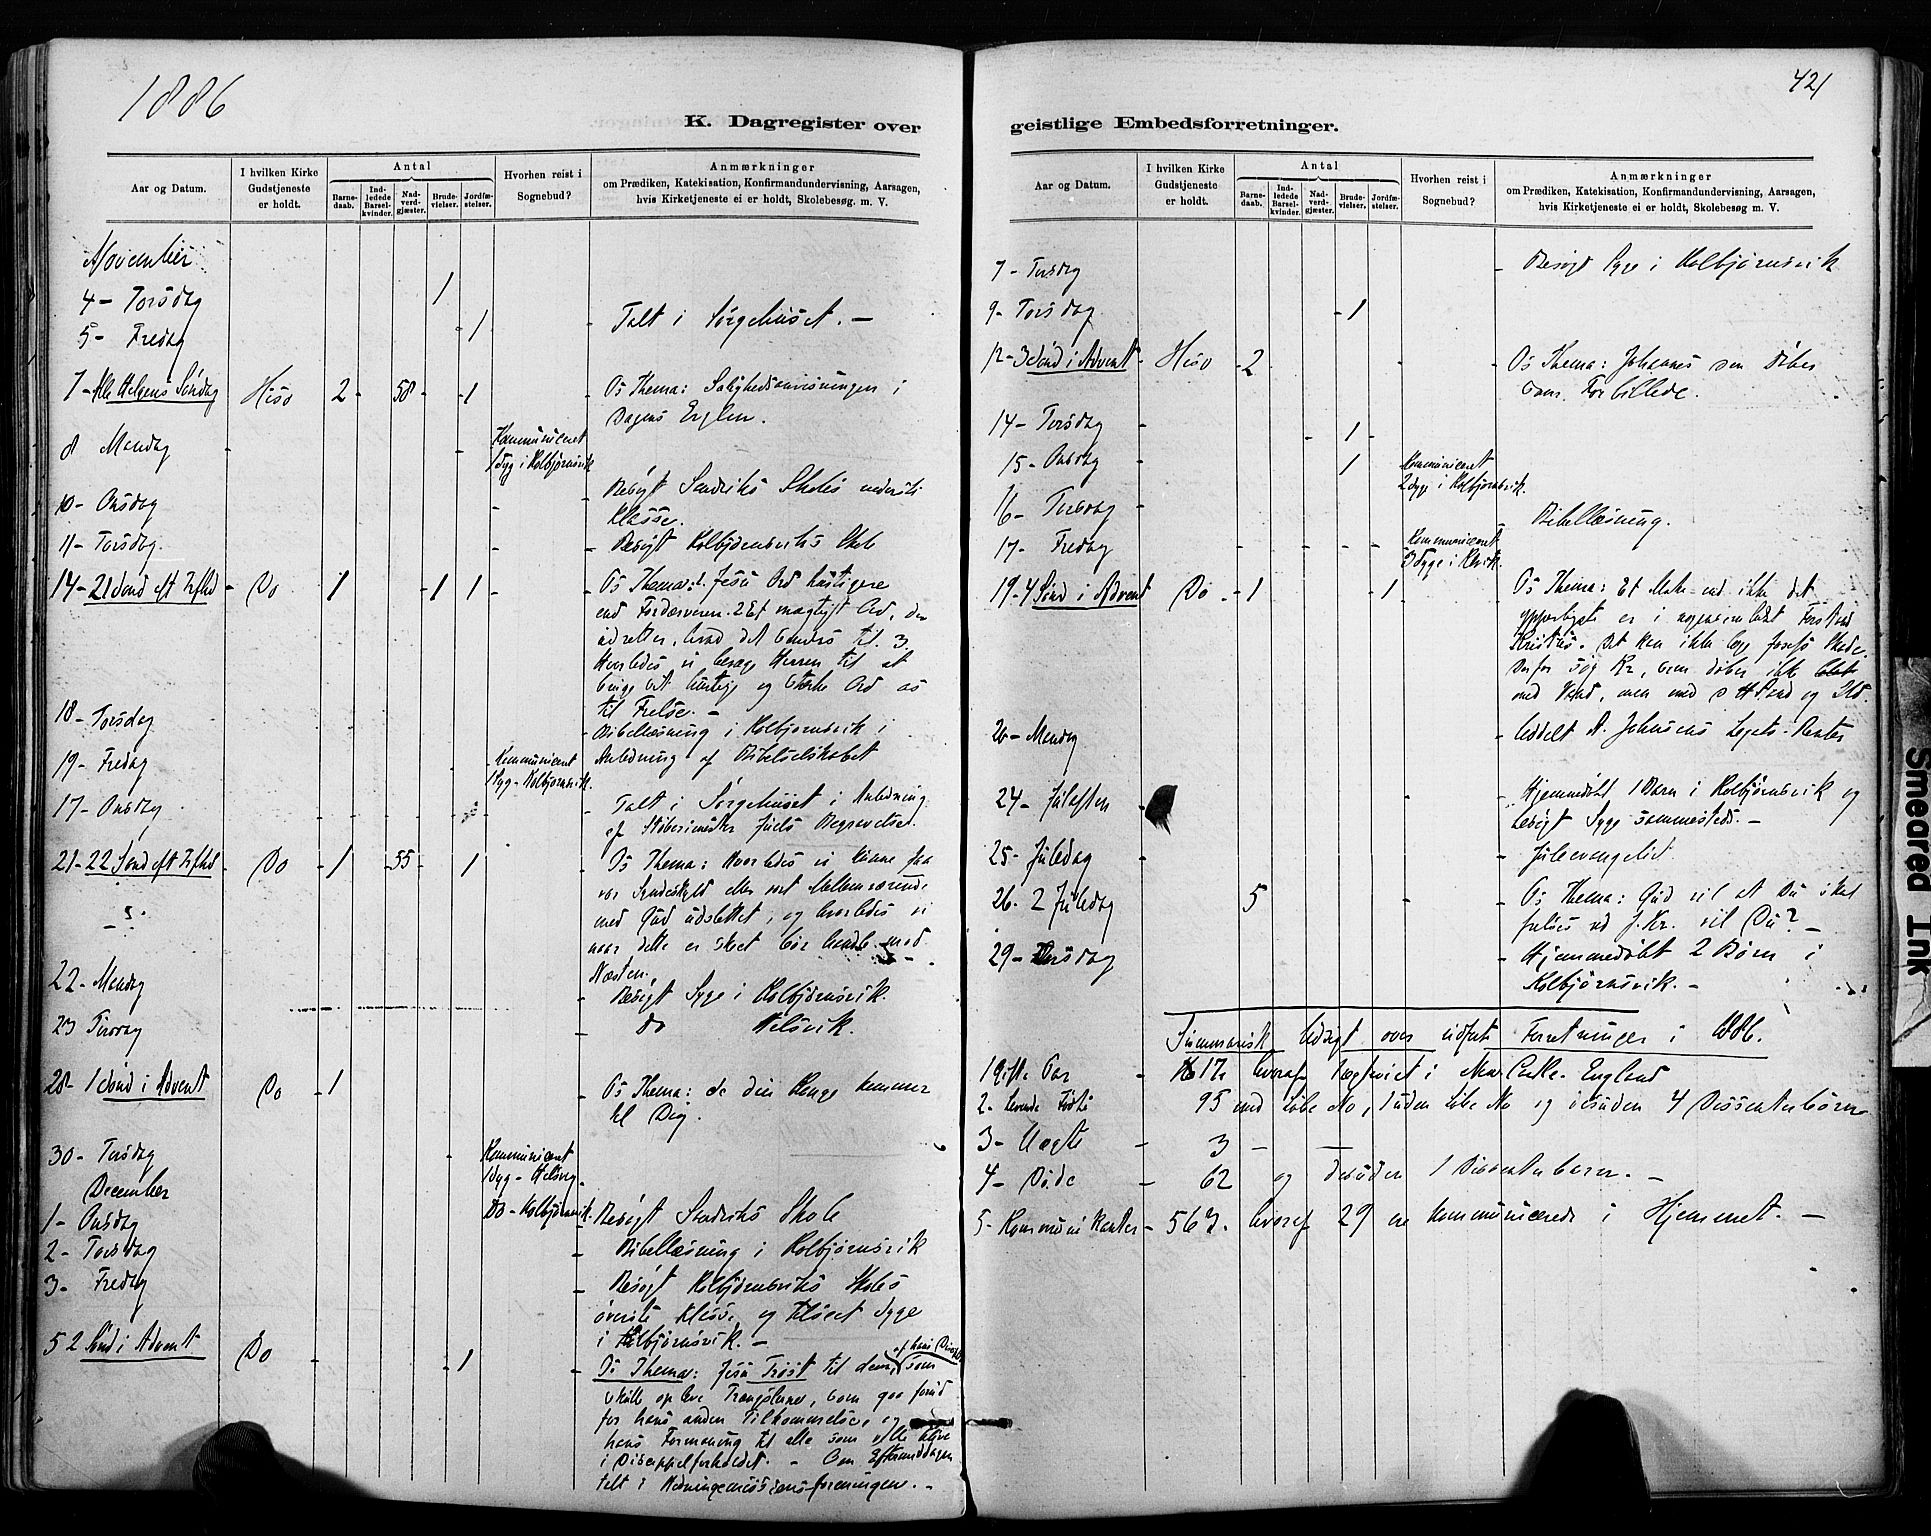 1886
K. Dagregister over
Aar og Datum.
I hvilken Kirke Gudstjeneste er holdt.
Antal
Barnedaab.
Indledede Barselkvinder.
Nadverdgjæster.
Brudevielser.
Jordfæstelser.
Hvorhen reist i Sognebud?
Anmærkninger
om Prædiken, Katekisation, Konfirmandundervisning, Aarsagen,
hvis Kirketjeneste ei er holdt, Skolebesøg. m. V.
November
4 - Torsdag 1
5 - Fredag 1 Talt i Sørgehuset. -
7 - Alle Helgens Søndag Hisø 2 58 1 Os Thema: Salighedsanvisningen i
Dagens Evglm.
8 Mandag Kommuniceret
1 Syg i Kolbjørnsvik
10 - Onsdag Besøgt Sandviks Skoles nederste
Klasse.
11 - Torsdag. Besøgt Kolbjørnsviks Skole
14 - 21 Sønd eft Trftd Do 1 1 1 Os Thema: 1. Jesu Ord hastigere
end Fordærveren. 2 Et mægtigt Ord, der
udretter, hvad det sendes til. 3
Hvorledes vi bevæge Herren til at
bringe sit hurtige og stærke Ord os
til Frelse. -
18 - Torsdag Bibellæsning i Kolbjørnsvik i
Anledning af Bibelselskabet
19 - Fredag Kommuniceret
1 Syg - Kolbjørnsvik.
17 - Onsdag Talt i Sørgehuset i Anledning
af Støberimester Juels Begravelse.
21 - 22 Sønd eft Trftd Do 1 55 1 Os Thema: Hvorledes vi kunne faa
vor Syndeskyld eller vort Mellemværende
med Gud udslettet, og hvorledes vi
naar dette er skeet bør handle mod
Næsten.
22 - Mandag Besøgt Syge i Kolbjørnsvik.
23 Tirsdag do Helsvik.
28 - 1 Sønd i Advent Do 1 Os Thema: se din Konge kommer
til Dig.
30 - Torsdag Kommuniceret
1 Syg - Helsvig
December
1 - Onsdag Do - Kolbjørnsvik. Besøgt Sandviks Skole
2 - Torsdag Bibellæsning i Kolbjørnsvik
3 - Fredag Besøgt Kolbjørnsviks Skoles
øverste Klasse, og tilseet Syge
i Kolbjørnsvik. -
5 2 Sønd i Advent Do 1 Os Thema: Jesu Trøst til dem, af hans Disciple som
skulle opleve Trængslerne, som gaa forud
for hans anden Tilkommelse, og
hans Formaning til alle som ville blive
i Discippelforholdet. - Om Eftermiddagen
talt i Hedningemissionsforeningen. -
421
geistlige Embedsforretninger.
Aar og Datum.
I hvilken Kirke Gudstjeneste er holdt.
Antal
Barnedaab.
Indledede Barselkvinder.
Nadverdgjæster.
Brudevielser.
Jordfæstelser.
Hvorhen reist i Sognebud?
Anmærkninger
om Prædiken, Katekisation, Konfirmandundervisning, Aarsagen,
hvis Kirketjeneste ei er holdt, Skolebesøg m. V.
7 - Tirsdag Besøgt Syge i Kolbjørnsvik
9 - Torsdag 1
12 - 3 Sønd i Advent Hisø 2 Os Thema: Johannes den Døber
som Forbillede.
14 - Tirsdag 1
15 - Onsdag 1 Kommuniceret
2 Syge i Kolbjørnsvik.
16 - Torsdag Bibellæsning.
17 - Fredag Kommuniceret
3 Syge i
19 - 4 Sønd i Advent Do 1 1 Os Thema: Et Maal end ikke det
ypperligste er i Forstand
Kristus. Det kan ikke
Derfor søg Kr, som døber ikke blot
med Vand, men med d H Aand og Ild.
20 - Mandag Uddelt A. Johnsens Legats-Renter
24 - Juleaften Hjemmedøbt 1 Barn i Kolbjørnsvik og
besøgt Syge sammesteds. -
25 - Juledag Juleevangeliet.
26 - 2 Juledag 5 Os Thema: Gud vil at Du skal
frelses ved J. Kr. vil Du? -
29 - Onsdag Hjemmedøbt 2 Børn i
Kolbjørnsvik. -
Summarisk Udsigt over udført Forretninger i 1886.
1 Gifte Par - 17, hvoraf 1 copuleret i England
2 - Levende Fødte 95 med Løbe No, 1 uden Løbe No og desuden 4 Dissenterbørn
3 - Uægte - 3 - -
4 - Døde - 62 og desuden 1 Dissenterbarn. -
5 - Kommunikanter - 567. hvoraf 29 ere kommunicerede i Hjemmet. -
Smeared Ink